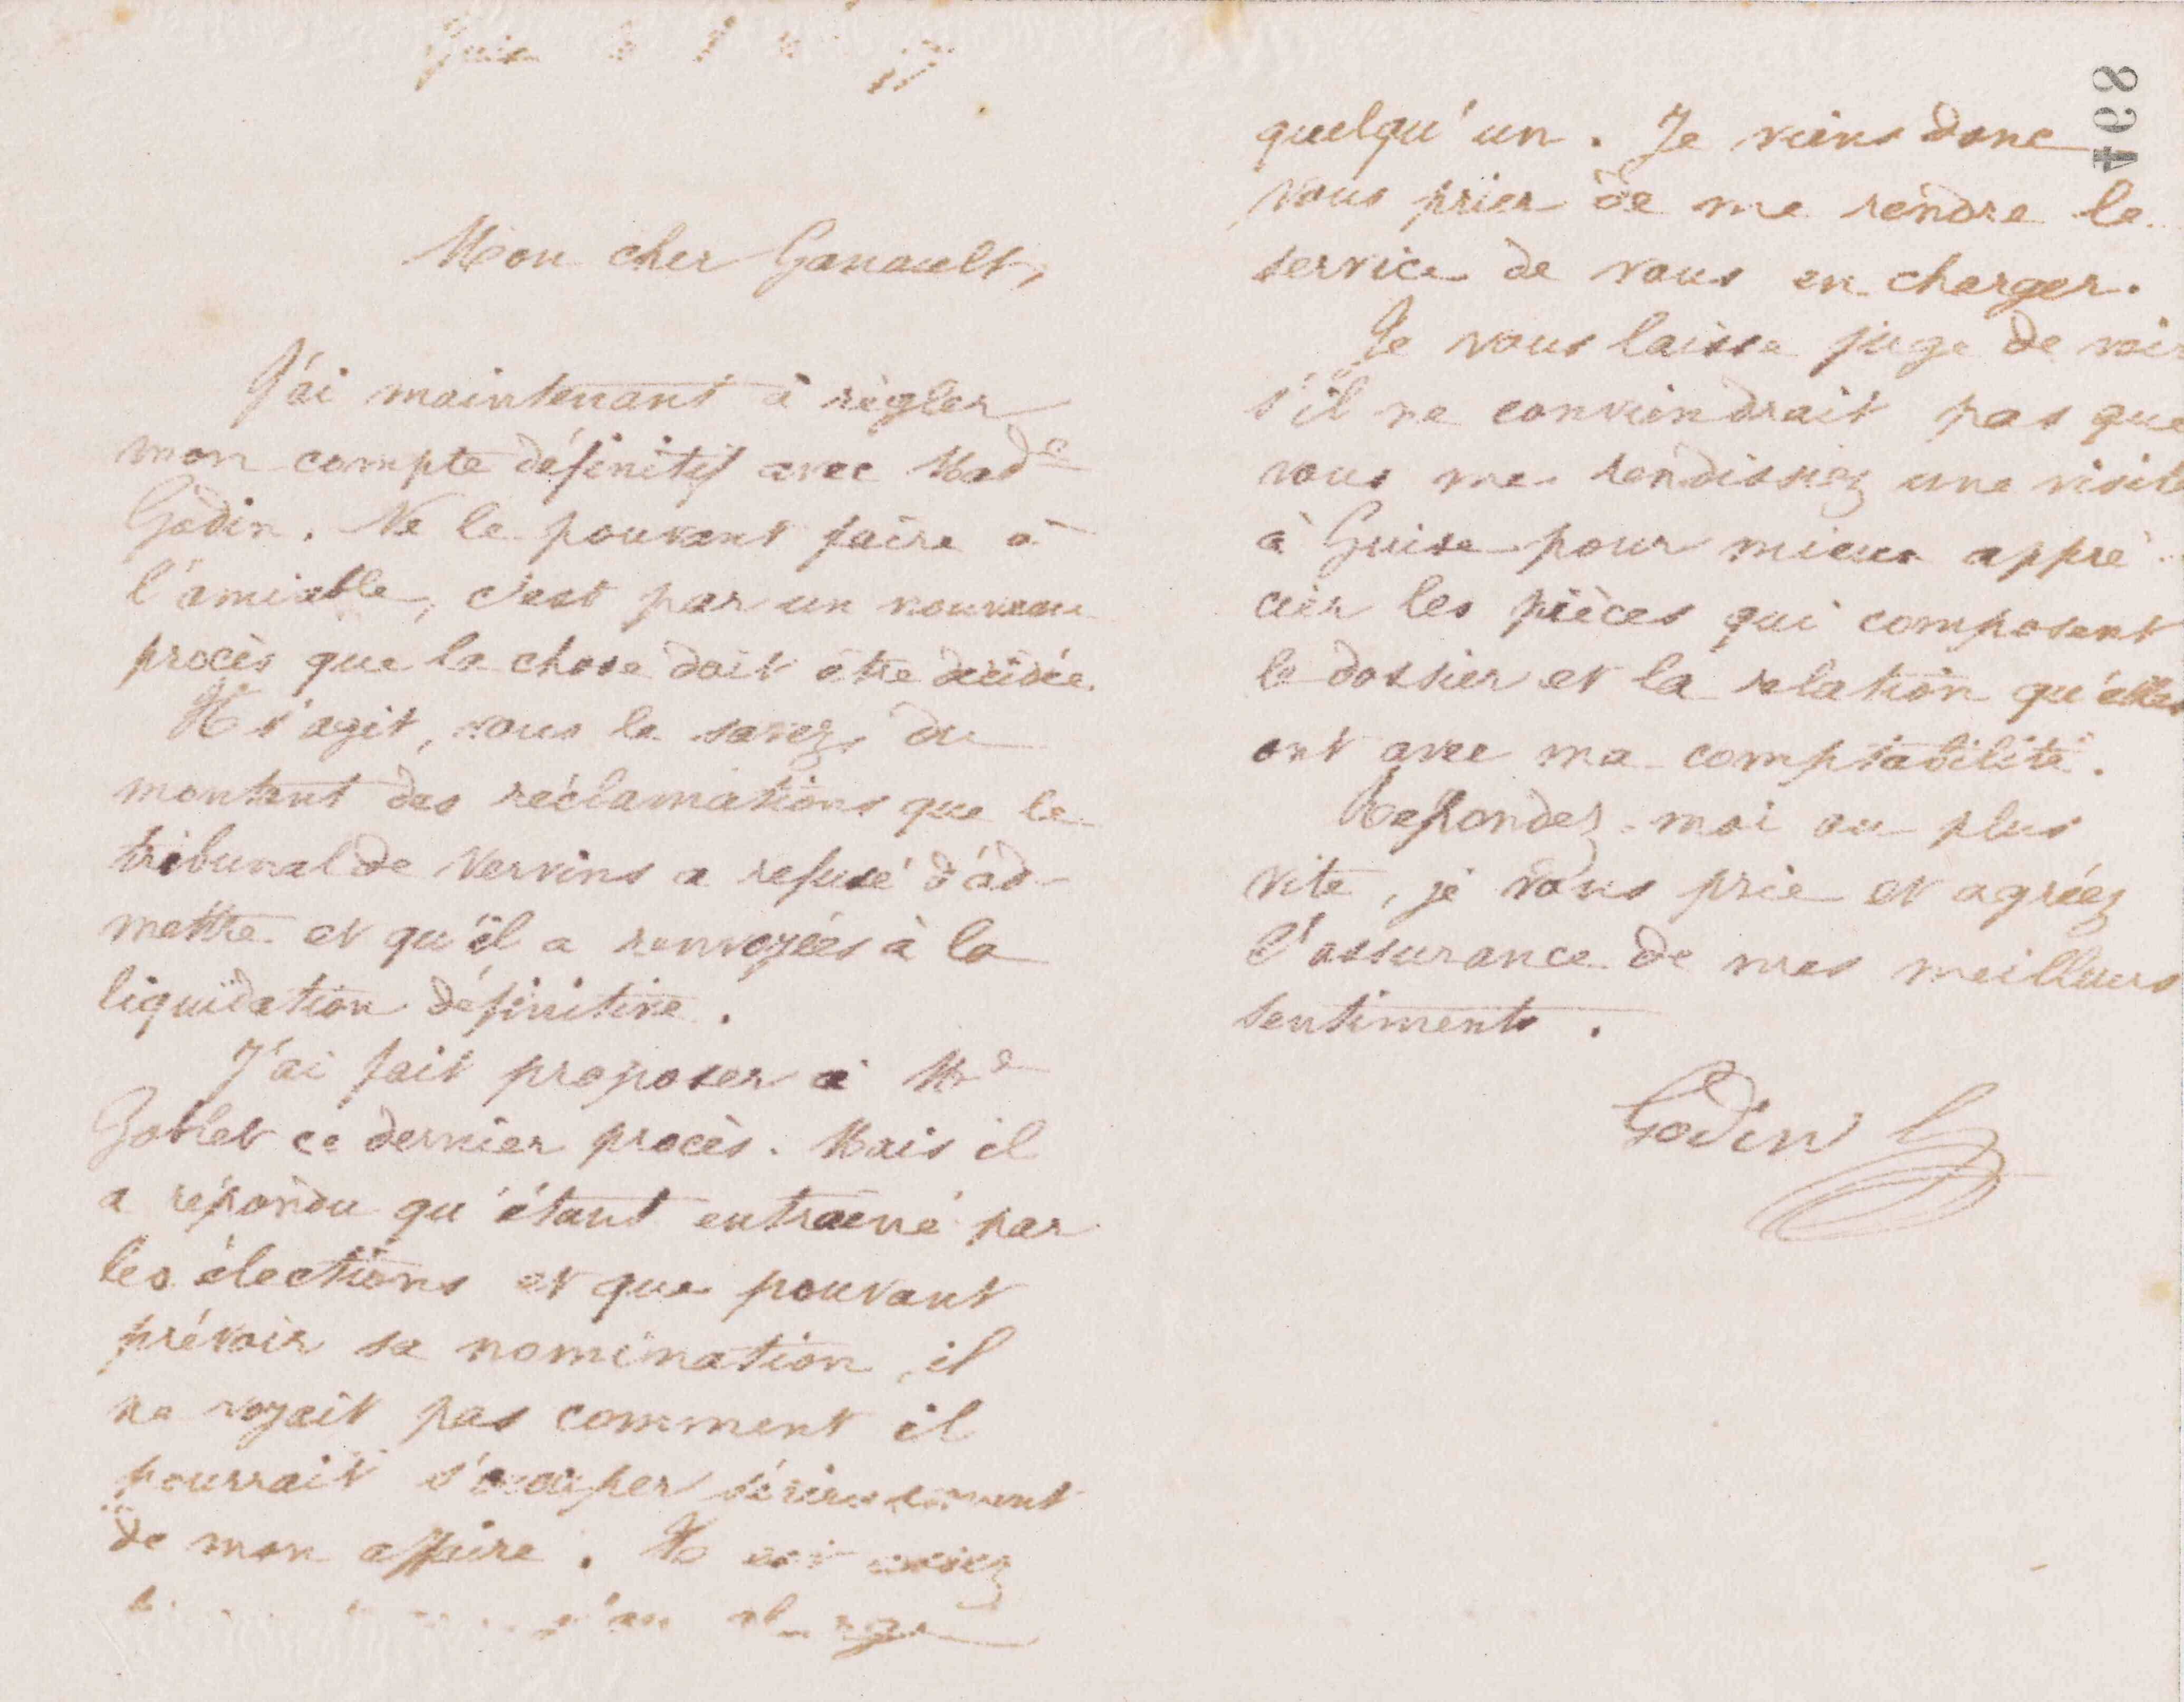 Mon cher Ganault,
J'ai maintenant à règler
mon compte définitif avec Mad^e
Godin. Ne le pouvant faire à
l'amiable, c'est par un nouveau
procès que la chose doit être décidée.
Il s'agit, vous le savez, du
montant des réclamations que le
tribunal de Vervins a refusé d'ad-
mettre et qu'il a renvoyées à la
liquidation définitive.
J'ai fait proposer à M^e
Goblet ce dernier procès. Mais il
a répondu qu'étant entraîné par
les élections et que pouvant
prévoir sa nomination, il
ne voyait pas comment il
pourrait s'occuper sérieusement
de mon affaire. Il est assez
s'en charge
quelqu'un. Je viens donc
vous prier de me rendre le
service de vous en charger.
Je vous laisse juge de voir
s'il ne conviendrait pas que
vous me rendissiez une visite
à Guise pour mieux appré-
cier les pièces qui composent
le dossier et la relation qu'elles
ont avec ma comptabilité.
Répondez-moi au plus
vite, je vous prie et agréez
l'assurance de mes meilleurs
sentiments.
Godin
894